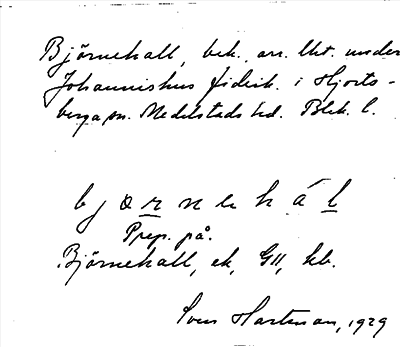 Björnekall, bek. arr. lht. under
Johannishus fideik. i Hjorts-
berga sn. Medelstads hd. Blek. l.
bjørnekál
Prep. på.
Björnekall, ek, GII, kb.
Sven Hartman, 1929